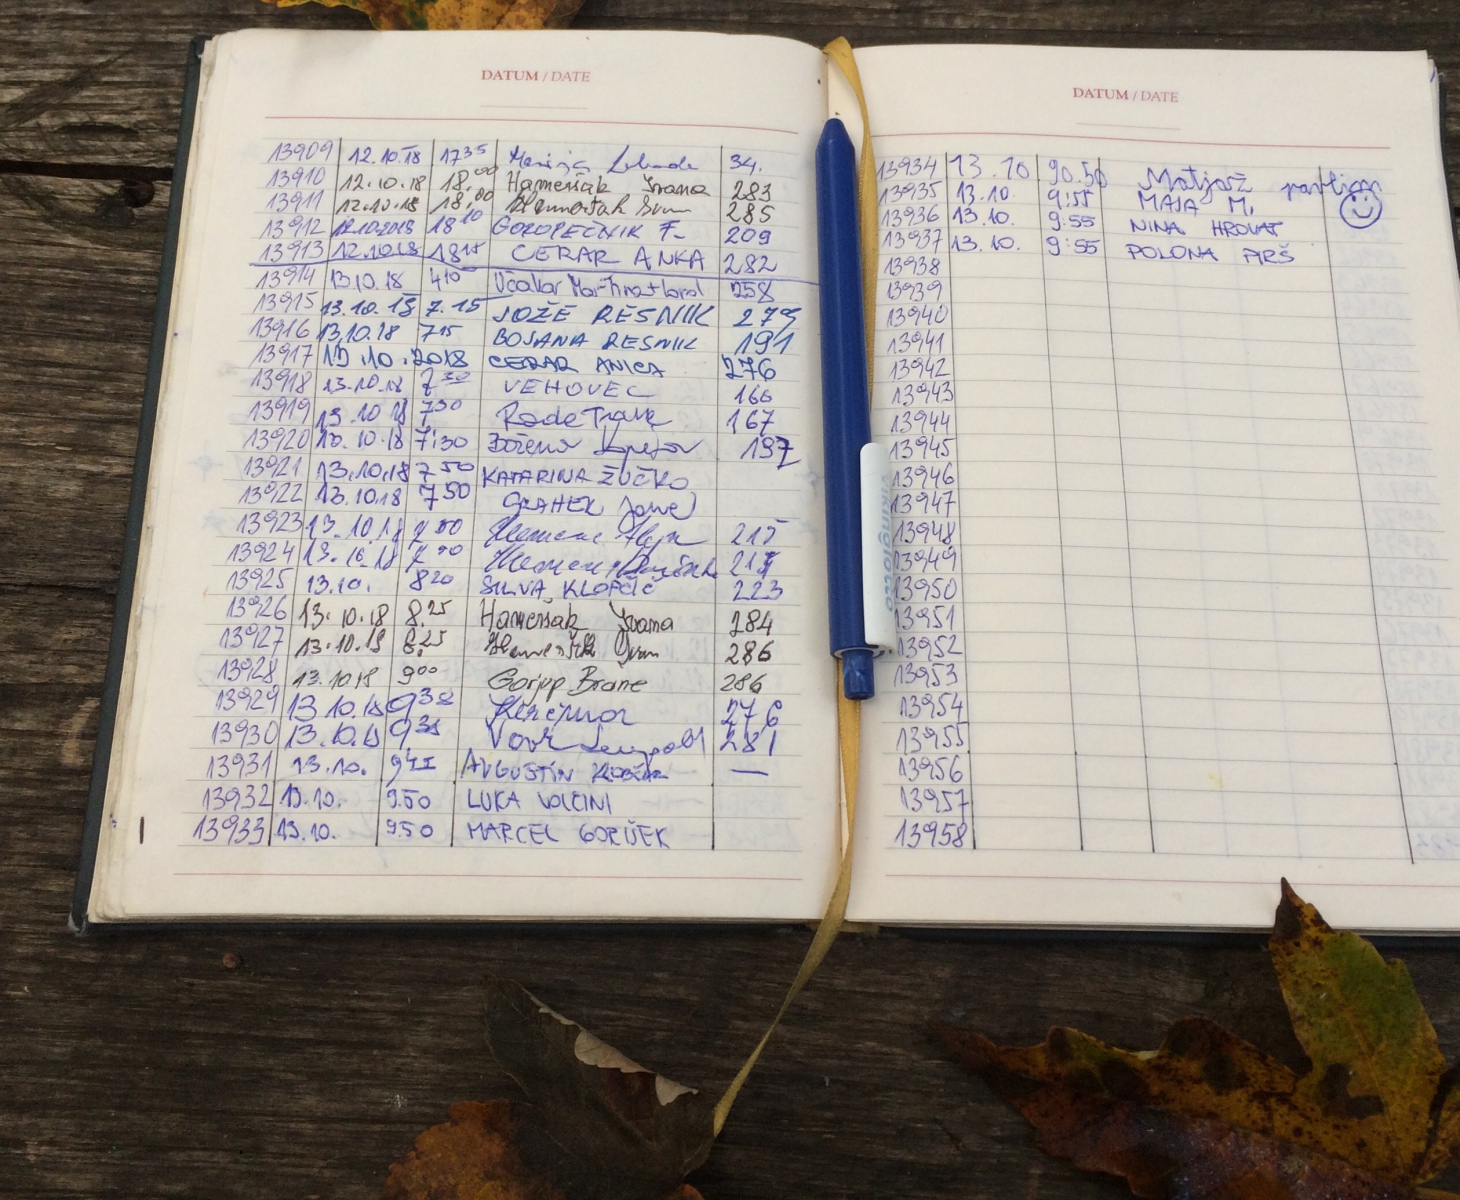 DATUM / DATE
13909 12.10.18 17 35 34.
13910 12.10.18 18.00 Hameršak Ivana 283
13911 12.10.18 18.00 285
13912 12.10.2018 18 10 GOROPEČNIK F. 209
13913 12.10.18 CERAR ANKA 282
13914 13.10.18 410 258
13915 13.10.18 7.15 JOŽE RESNIK 279
13916 13.10.18 715 BOJANA RESNIK 191
13917 13.10.2018 CERAR ANICA 276
13918 13.10.18 7 30 VEHOVEC 166
13919 13.10.18 730 Rade 167
13920 13.10.18 7:30 197
13921 13.10.18 7 50 KATARINA ŽUČKO
13922 13.10.18 7 50 GRAHEK
13923 13.10.18 215
13924 13.10.18
13925 13.10. 8 20 SILVA KLOPČIČ 223
13926 13.10.18 8.25 Hameršak Ivana 284
13927 13.10.18 8.25 286
13928 13.10.18 9 00 Gorjup Brane 286
13929 13 10.18 276
13930 13.10.18 Vovk 281
13931 13.10. AVGUSTIN —
13932 13.10. 9.50 LUKA VOLCINI
13933 13.10. 9.50 MARCEL GORIŠEK
DATUM / DATE
13934 13.10 Matjaž
13935 13.10. 9:55 MAJA M.
13936 13.10. 9:55 NINA HROVAT
13937 13.10. 9:55 POLONA PIRŠ
13938
13939
13940
13941
13942
13943
13944
13945
13946
13947
13948
13949
13950
13951
13952
13953
13954
13955
13956
13957
13958
vikinglotto